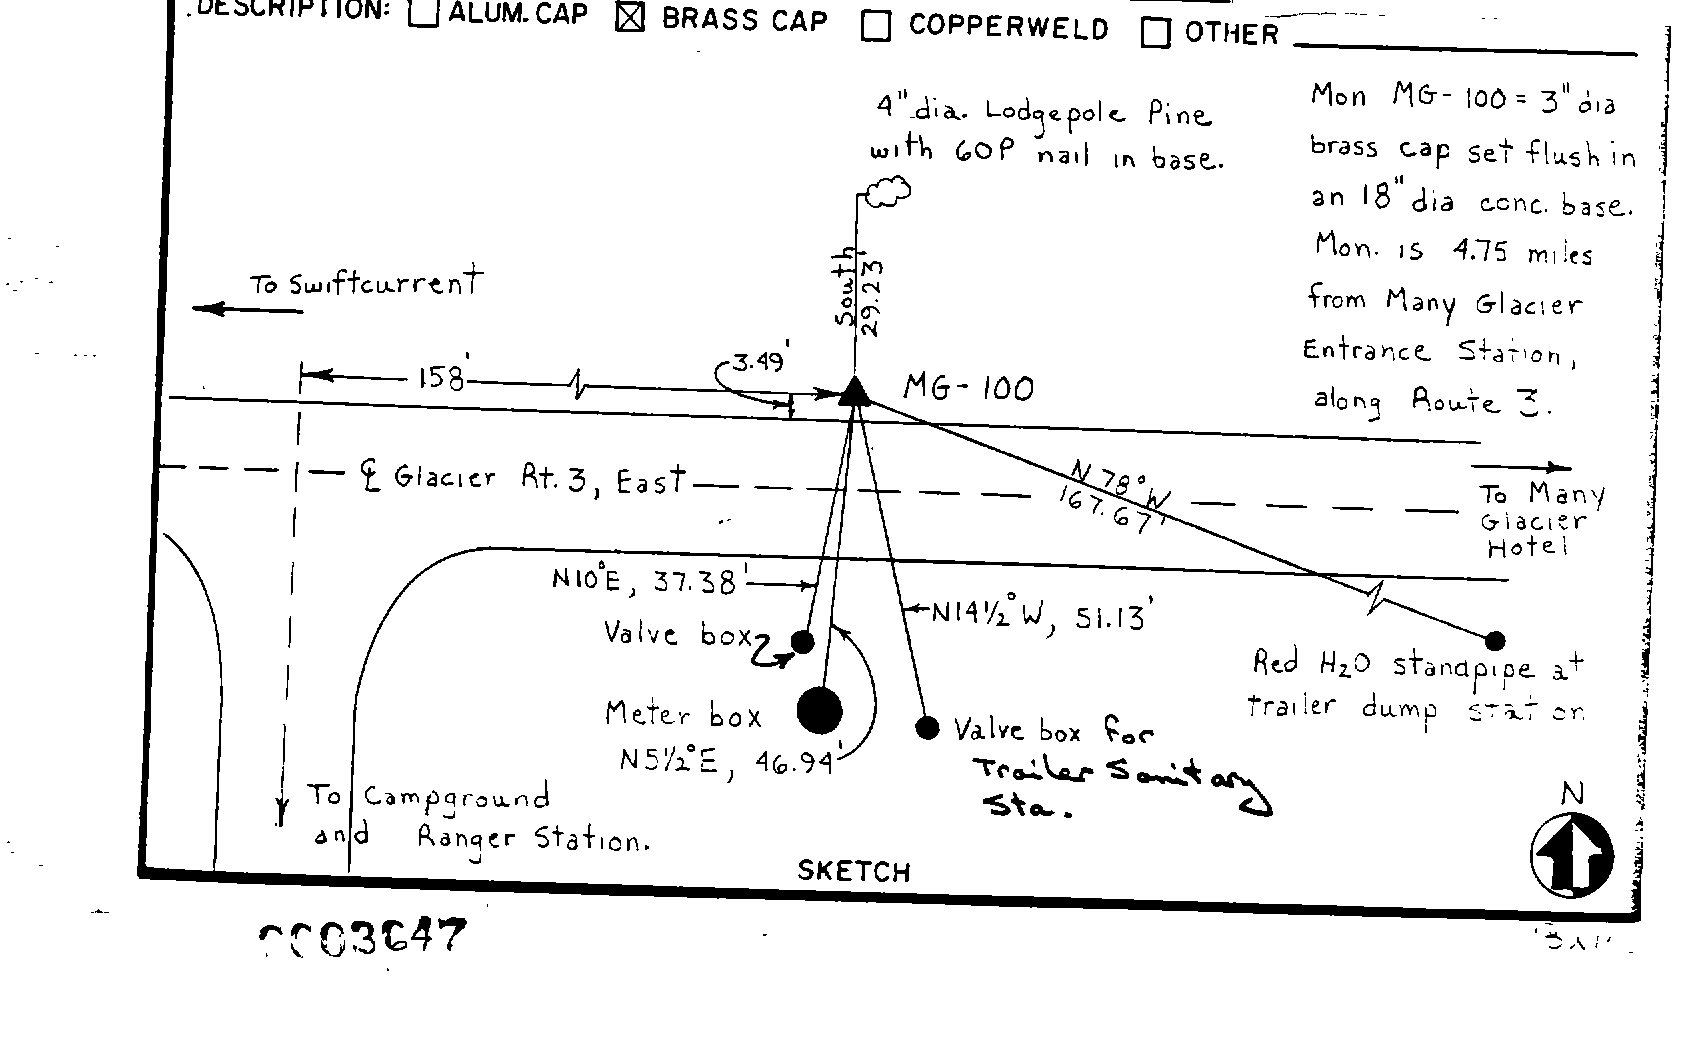 DESCRIPTION: ☐ ALUM. CAP ☒ BRASS CAP ☐ COPPERWELD ☐ OTHER
4" dia. Lodgepole Pine
with 60P nail in base.
Mon MG-100 = 3" dia
brass cap set flush in
an 18" dia conc. base.
Mon. is 4.75 miles
from Many Glacier
Entrance Station,
along Route 3.
South
29.23'
To Swiftcurrent
158'
3.49'
MG-100
℄ Glacier Rt. 3, East
N 78° W
167.67'
To Many
Glacier
Hotel
N10°E, 37.38'
N14½°W, 51.13'
Valve box
Red H₂O standpipe at
trailer dump station
Meter box
N5½°E, 46.94'
Valve box for
Trailer Sanitary
Sta.
To Campground
and Ranger Station.
N
SKETCH
0003647